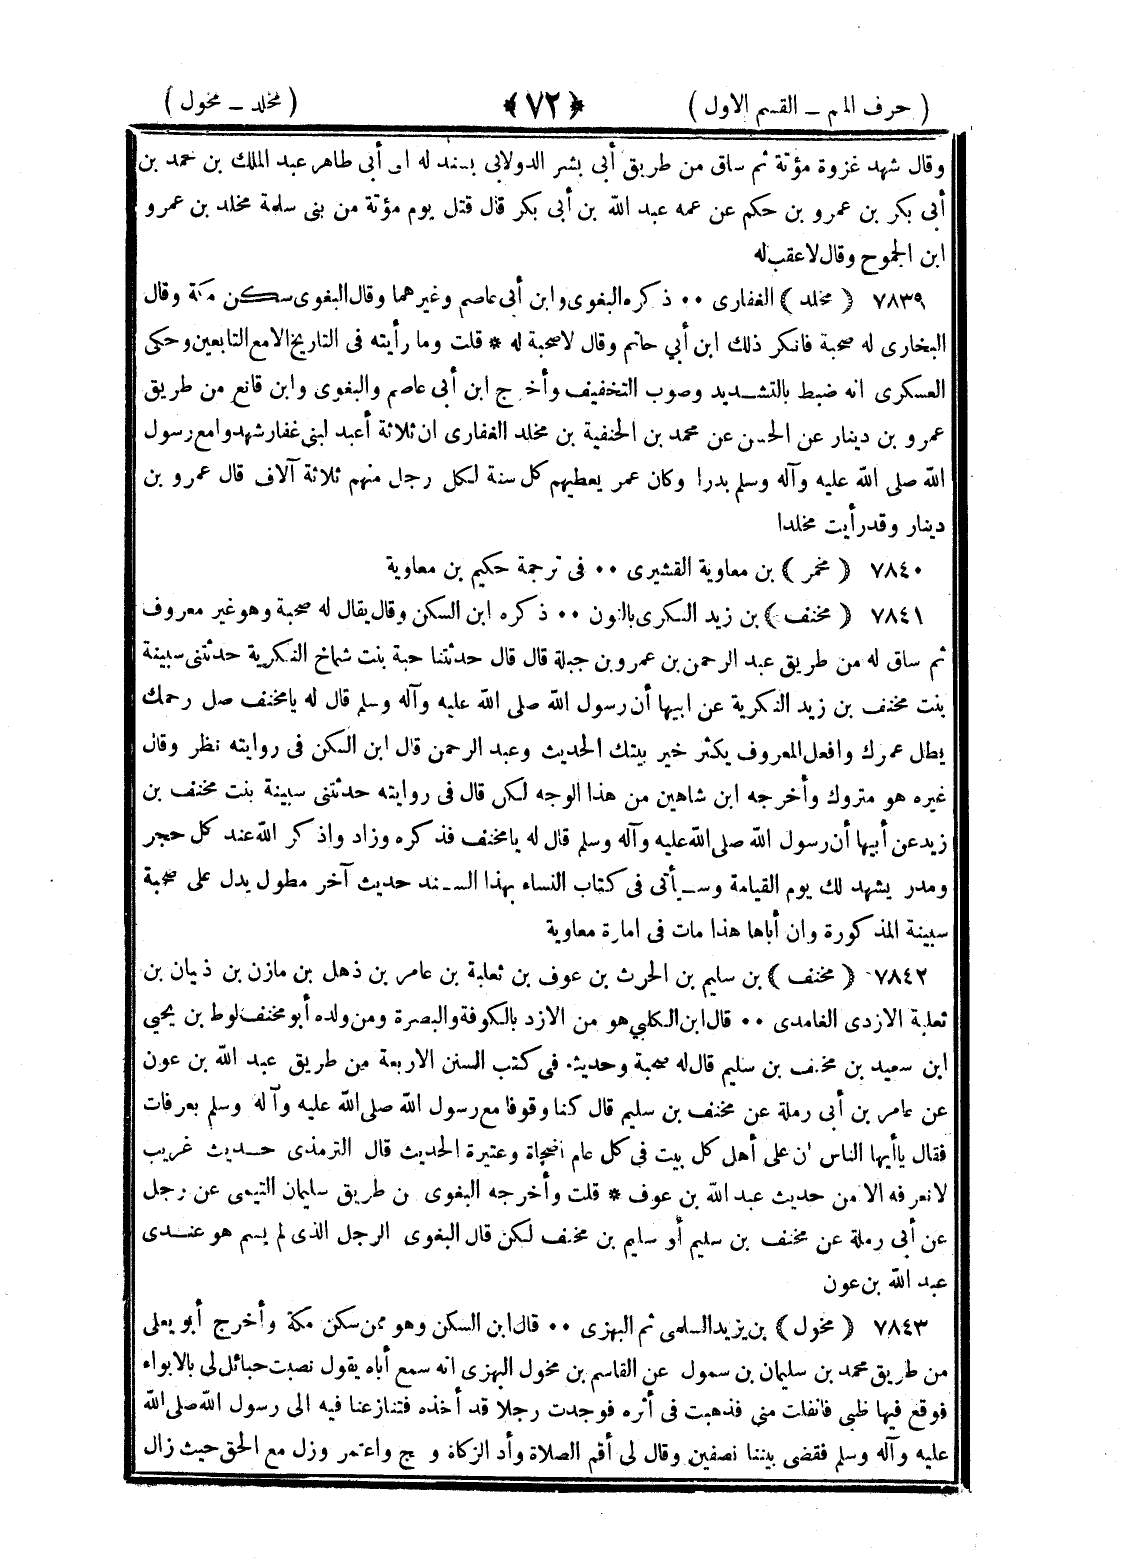 ( حرف الميم ــ القسم الاول ) ﴿ ٧٢ ﴾ ( مخلد ــ مخول )
وقال شهد غزوة مؤتة ثم ساق من طريق أبى بشر الدولابى بسند له الى أبى طاهر عبد الملك بن محمد بن
أبى بكر بن عمرو بن حكم عن عمه عبد الله بن أبى بكر قال قتل يوم مؤتة من بنى سلمة مخلد بن عمرو
ابن الجموح وقال لاعقب له
٧٨٣٩ ﴿ مخلد ﴾ الغفارى ٠٠ ذكره البغوى وابن أبى عاصم وغيرهما وقال البغوى سكن مكة وقال
البخارى له صحبة فانكر ذلك ابن أبي حاتم وقال لاصحبة له * قلت وما رأيته فى التاريخ الامع التابعين وحكى
العسكرى انه ضبط بالتشديد وصوب التخفيف وأخرج ابن أبى عاصم والبغوى وابن قانع من طريق
عمرو بن دينار عن الحسن عن محمد بن الحنفية بن مخلد الغفارى ان ثلاثة أعبد لبنى غفار شهدوا مع رسول
الله صلى الله عليه وآله وسلم بدرا وكان عمر يعطيهم كل سنة لكل رجل منهم ثلاثة آلاف قال عمرو بن
دينار وقد رأيت مخلدا
٧٨٤٠ ﴿ مخمر ﴾ بن معاوية القشيرى ٠٠ فى ترجمة حكيم بن معاوية
٧٨٤١ ﴿ مخنف ﴾ بن زيد النكرى بالنون ٠٠ ذكره ابن السكن وقال يقال له صحبة وهو غير معروف
ثم ساق له من طريق عبد الرحمن بن عمرو بن جبلة قال قال حدثتنا حبة بنت شماخ النكرية حدثتنى سبينة
بنت مخنف بن زيد النكرية عن ابيها أن رسول الله صلى الله عليه وآله وسلم قال له يا مخنف صل رحمك
يطل عمرك وافعل المعروف يكثر خير بيتك الحديث وعبد الرحمن قال ابن السكن فى روايته نظر وقال
غيره هو متروك وأخرجه ابن شاهين من هذا الوجه لكن قال فى روايته حدثتنى سبينة بنت مخنف بن
زيد عن أبيها أن رسول الله صلى الله عليه وآله وسلم قال له يا مخنف فذكره وزاد واذكر الله عند كل حجر
ومدر يشهد لك يوم القيامة وسيأتى فى كتاب النساء بهذا السند حديث آخر مطول يدل على صحبة
سبينة المذكورة وان أباها هذا مات فى امارة معاوية
٧٨٤٢ ﴿ مخنف ﴾ بن سليم بن الحرث بن عوف بن ثعلبة بن عامر بن ذهل بن مازن بن ذبيان بن
ثعلبة الازدى الغامدى ٠٠ قال ابن الكلبي هو من الازد بالكوفة والبصرة ومن ولده أبو مخنف لوط بن يحيي
ابن سعيد بن مخنف بن سليم قال له صحبة وحديثه فى كتب السنن الاربعة من طريق عبد الله بن عون
عن عامر بن أبى رملة عن مخنف بن سليم قال كنا وقوفا مع رسول الله صلى الله عليه وآله وسلم بعرفات
فقال ياأيها الناس ان على أهل كل بيت فى كل عام اضحاة وعتيرة الحديث قال الترمذى حديث غريب
لانعرفه الا من حديث عبد الله بن عوف * قلت وأخرجه البغوى من طريق سليمان التيمى عن رجل
عن أبى رملة عن مخنف بن سليم أو سليم بن مخنف لكن قال البغوى الرجل الذى لم يسم هو عندى
عبد الله بن عون
٧٨٤٣ ﴿ مخول ﴾ بن يزيد السلمى ثم البهزى ٠٠ قال ابن السكن وهو ممن سكن مكة وأخرج أبو يعلى
من طريق محمد بن سليمان بن سمول عن القاسم بن مخول البهزى انه سمع أباه يقول نصبت حبائل لى بالابواء
فوقع فيها ظبى فانفلت مني فذهبت فى أثره فوجدت رجلا قد أخذه فتنازعنا فيه الى رسول الله صلى الله
عليه وآله وسلم فقضى بيننا نصفين وقال لى أقم الصلاة وأد الزكاة وحج واعتمر وزل مع الحق حيث زال